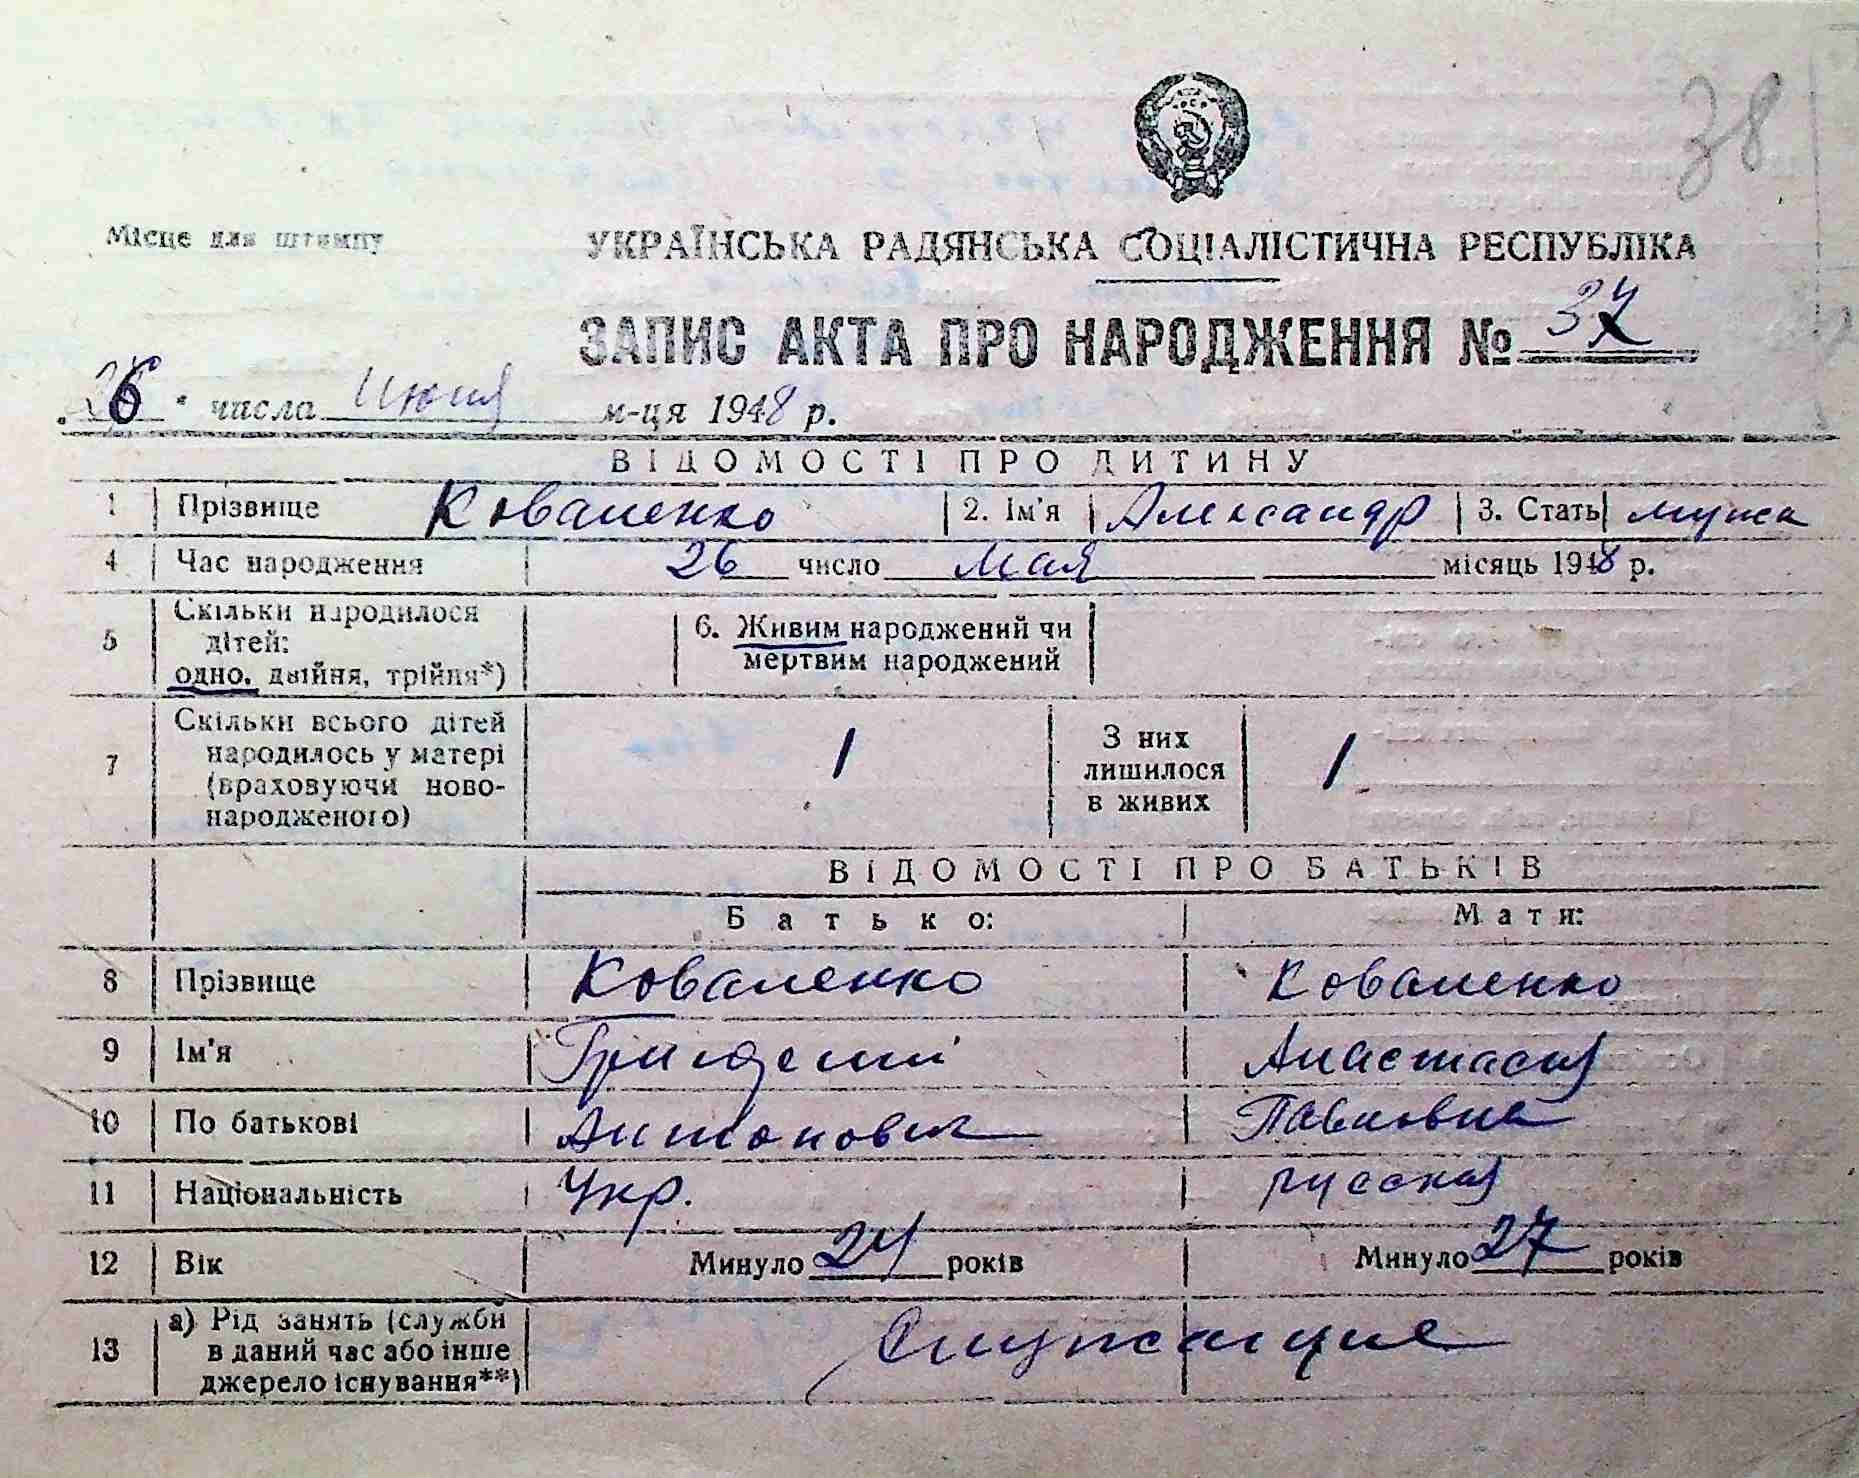 38
Місце для штампу
УКРАЇНСЬКА РАДЯНСЬКА СОЦІАЛІСТИЧНА РЕСПУБЛІКА
ЗАПИС АКТА ПРО НАРОДЖЕННЯ № 37
„ 26 " числа Июня м-ця 1948 р.
ВІДОМОСТІ ПРО ДИТИНУ
1 Прізвище Коваленко 2. Ім'я Александр 3. Стать мужск
4 Час народження 26 число Мая місяць 1948 р.
5 Скільки народилося дітей: одно, двійня, трійня*) 6. Живим народжений чи мертвим народжений
7 Скільки всього дітей народилось у матері (враховуючи ново-народженого) 1 З них лишилося в живих 1
ВІДОМОСТІ ПРО БАТЬКІВ
Батько: Мати:
8 Прізвище Коваленко Коваленко
9 Ім'я Григорий Анастасия
10 По батькові Антонович Павловна
11 Національність Укр. русская
12 Вік Минуло 24 років Минуло 27 років
13 а) Рід занять (служби в даний час або інше джерело існування**) Служащие